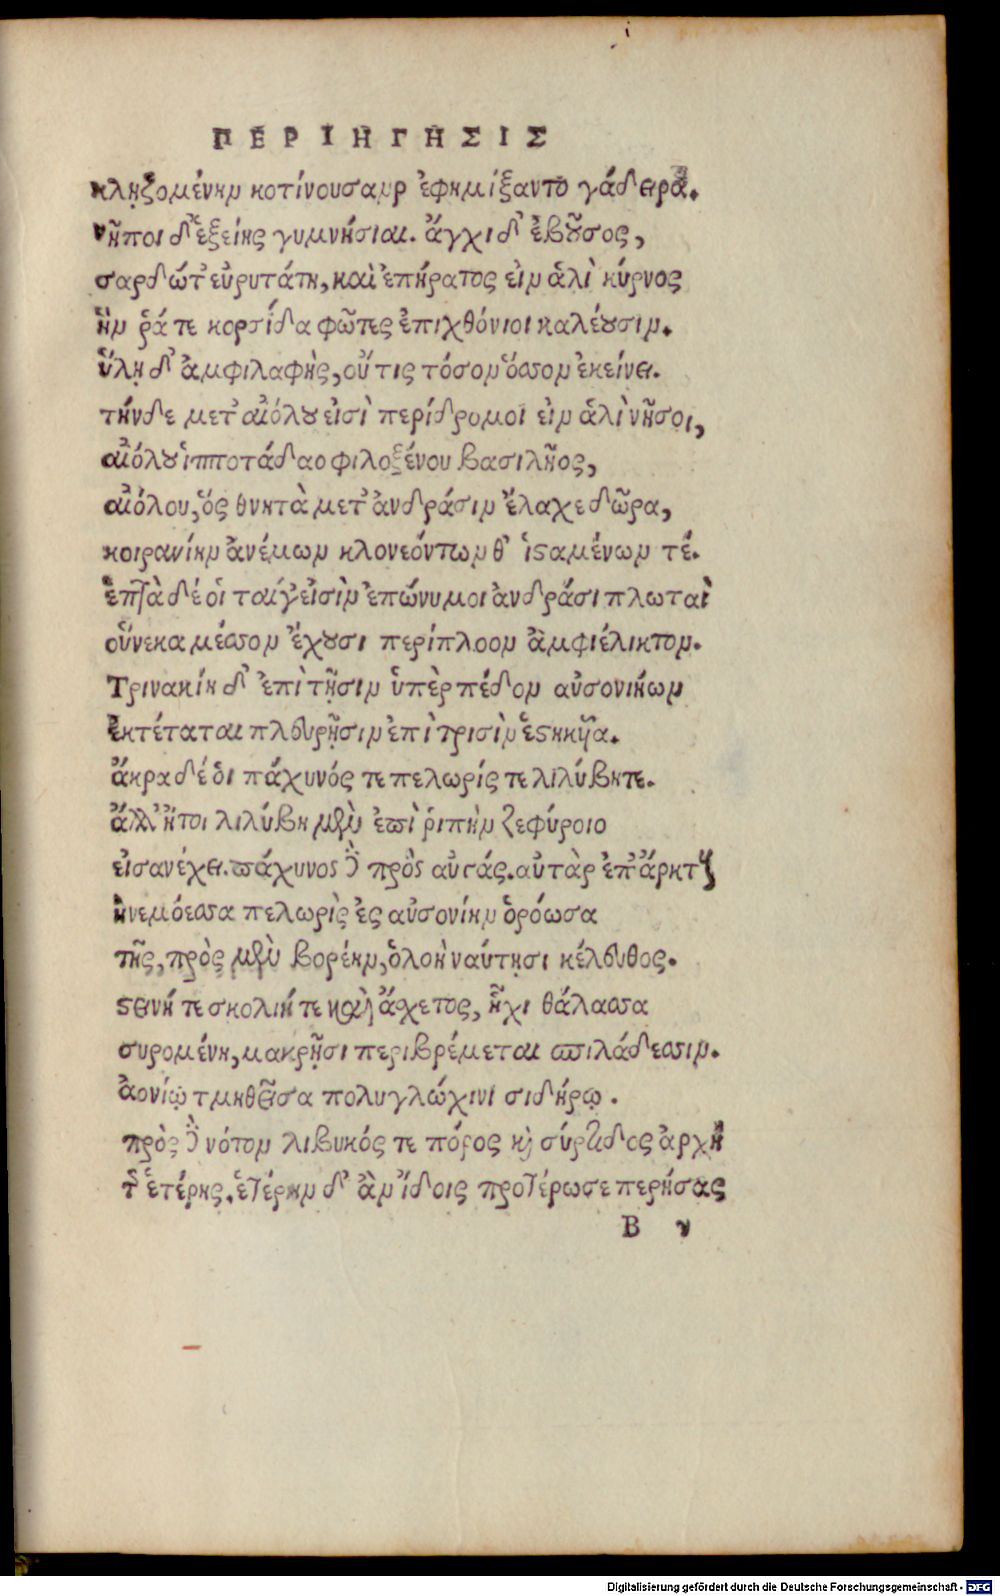 ΠΕΡΙΗΓΗΣΙΣ
κληζομένην κοτίνουσαυρ ἐφημίξαντο γάδειρα.
νῆποι δ' ἑξείης γυμνήσιαι. ἄγχι δ' ἐβοῦσος,
σαρδώ τ' εὐρυτάτη, καὶ ἐπήρατος εἰν ἁλὶ κύρνος
ἣν ῥά τε κορσίδα φῶτες ἐπιχθόνιοι καλέουσιν.
ὕλη δ' ἀμφιλαφὴς, οὔ τις τόσον ὅσσον ἐκείνει.
τήνδε μετ' αἰόλου εἰσὶ περίδρομοι εἰν ἁλὶ νῆσοι,
αἰόλου ἱπποτάδαο φιλοξένου βασιλῆος,
αἰόλου, ὅς θνητὰ μετ' ἀνδράσιν ἔλαχε δῶρα,
κοιρανίην ἀνέμων κλονεόντων θ' ἱσταμένων τέ.
ἑπτὰ δέ οἱ ταί γ' εἰσὶν ἐπώνυμοι ἀνδράσι πλωταὶ
οὕνεκα μέσσον ἔχουσι περίπλοον ἀμφιέλικτον.
Τρινακίη δ' ἐπὶ τῆσιν ὑπὲρ πέδον αὐσονιήων
ἐκτέταται πλευρῆσιν ἐπὶ τρισὶν ἑστηκυῖα.
ἄκρα δέ οἱ πάχυνός τε πελωρίς τε λιλύβη τε.
ἄλλ' ἤτοι λιλύβη μὲν ἐπὶ ῥιπὴν ζεφύροιο
εἰσανέχει. πάχυνος δὲ πρὸς αὐγάς. αὐτὰρ ἐπ' ἄρκτους
ἠνεμόεσσα πελωρὶς ἐς αὐσονίην ὁρόωσα
τῆς, πρὸς μὲν βορέην, ὀλοὴ ναύτησι κέλευθος.
στεινή τε σκολιή τε καὶ ἄσχετος, ἧχι θάλασσα
συρομένη, μακρῆσι περιβρέμεται σπιλάδεσσιν.
ἀονίῳ τμηθεῖσα πολυγλώχινι σιδήρῳ.
πρὸς δὲ νότον λιβυκός τε πόρος καὶ σύρτιδος ἀρχὴ
τῆς ἑτέρης. ἑτέρην δ' ἂν ἴδοις προτέρωσε περήσας
B ν
Digitalisierung gefördert durch die Deutsche Forschungsgemeinschaft - DFG